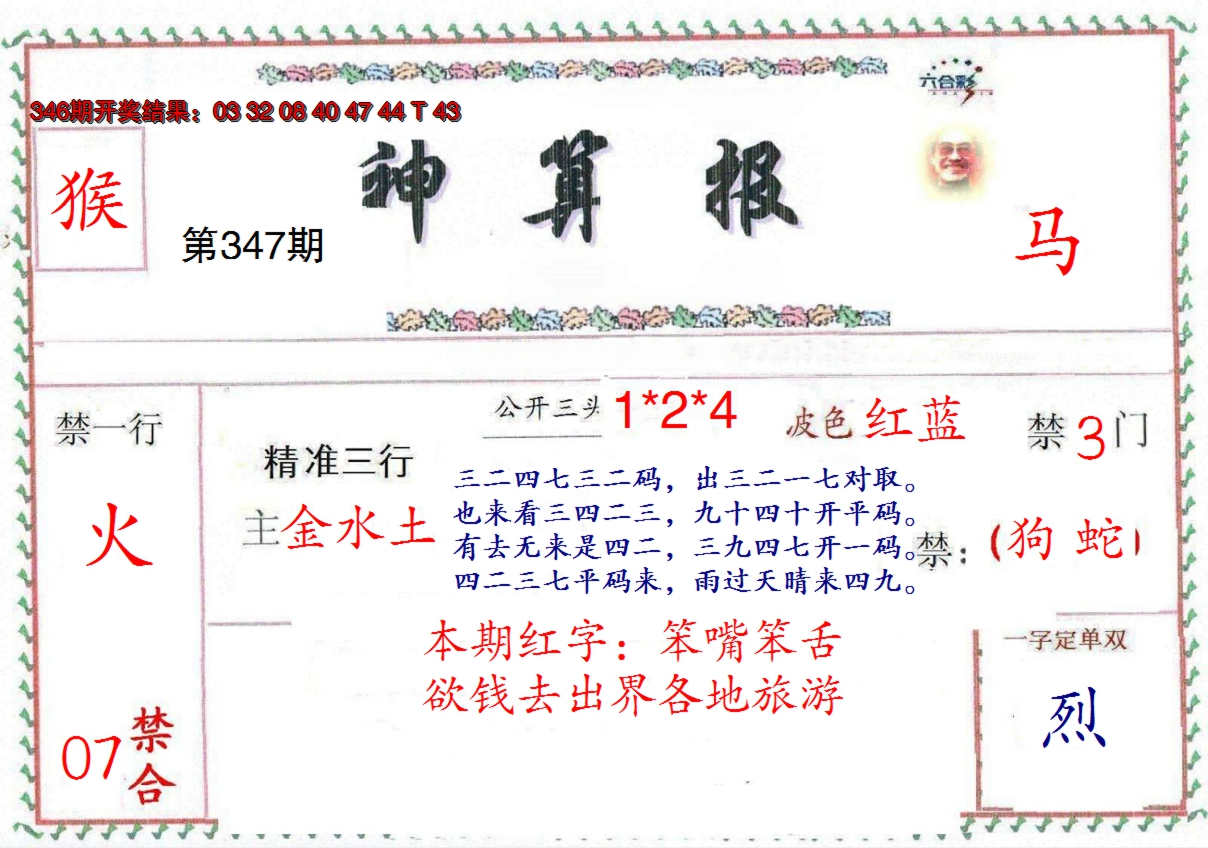 六合彩
346期开奖结果：03 32 08 40 47 44 T 43
神算报
猴
第347期
马
禁一行
火
07
禁合
公开三头 1*2*4
波色 红蓝
禁3门
精准三行
主金水土
三二四七三二码，出三二一七对取。
也来看三四二三，九十四十开平码。
有去无来是四二，三九四七开一码。
四二三七平码来，雨过天晴来四九。
禁：(狗 蛇)
本期红字：笨嘴笨舌
欲钱去出界各地旅游
一字定单双
烈